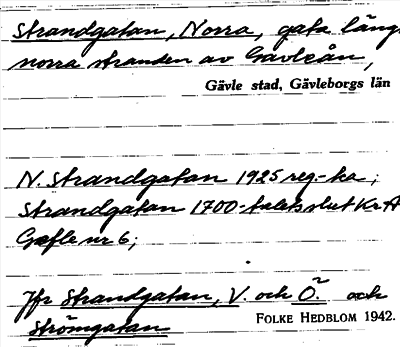 Strandgatan, Norra, gata längs
norra stranden av Gavleån,
Gävle stad, Gävleborgs län
N. Strandgatan 1925 reg.-ka;
Strandgatan 1700-talets slut Kr A
Gefle nr 6;
Jfr Strandgatan, V. och Ö. och
Strömgatan
FOLKE HEDBLOM 1942.